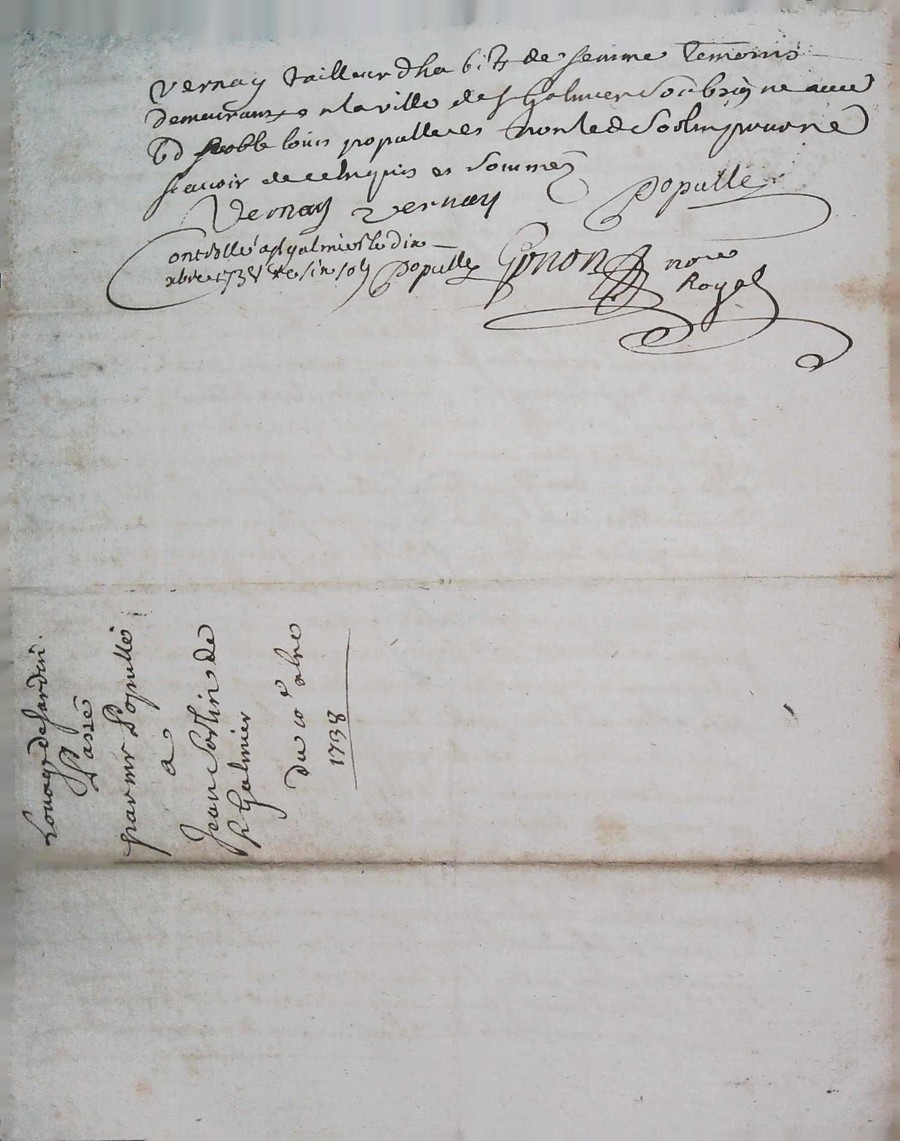 vernay tailleur dhabitz de femme temoins
demeurants en la ville de st galmier soubsignes avec
led noble louis populle et non led Sorlin pour ne
scavoir de ce enquis et sommé
Vernay vernay Populle
controllé a st galmier le dix
xbre 1738 Populle Gonon nore
Royal
Louage de Jardin
Passé
par mr Populle
a
Jean Sorlin de
St Galmier
du 10e xbre
1738